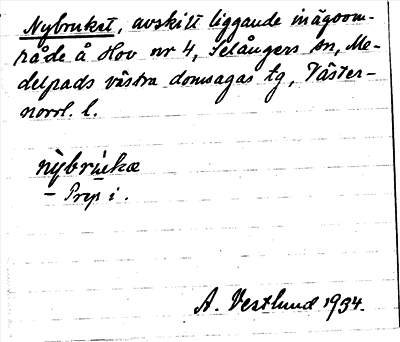 Nybruket, avskilt liggande inägoom-
råde å Hov nr 4, Selångers sn, Me-
delpads västra domsagas tg, Väster-
norrl. l.
nỳbrùkæ
— Prep i.
A. Vestlund 1934.